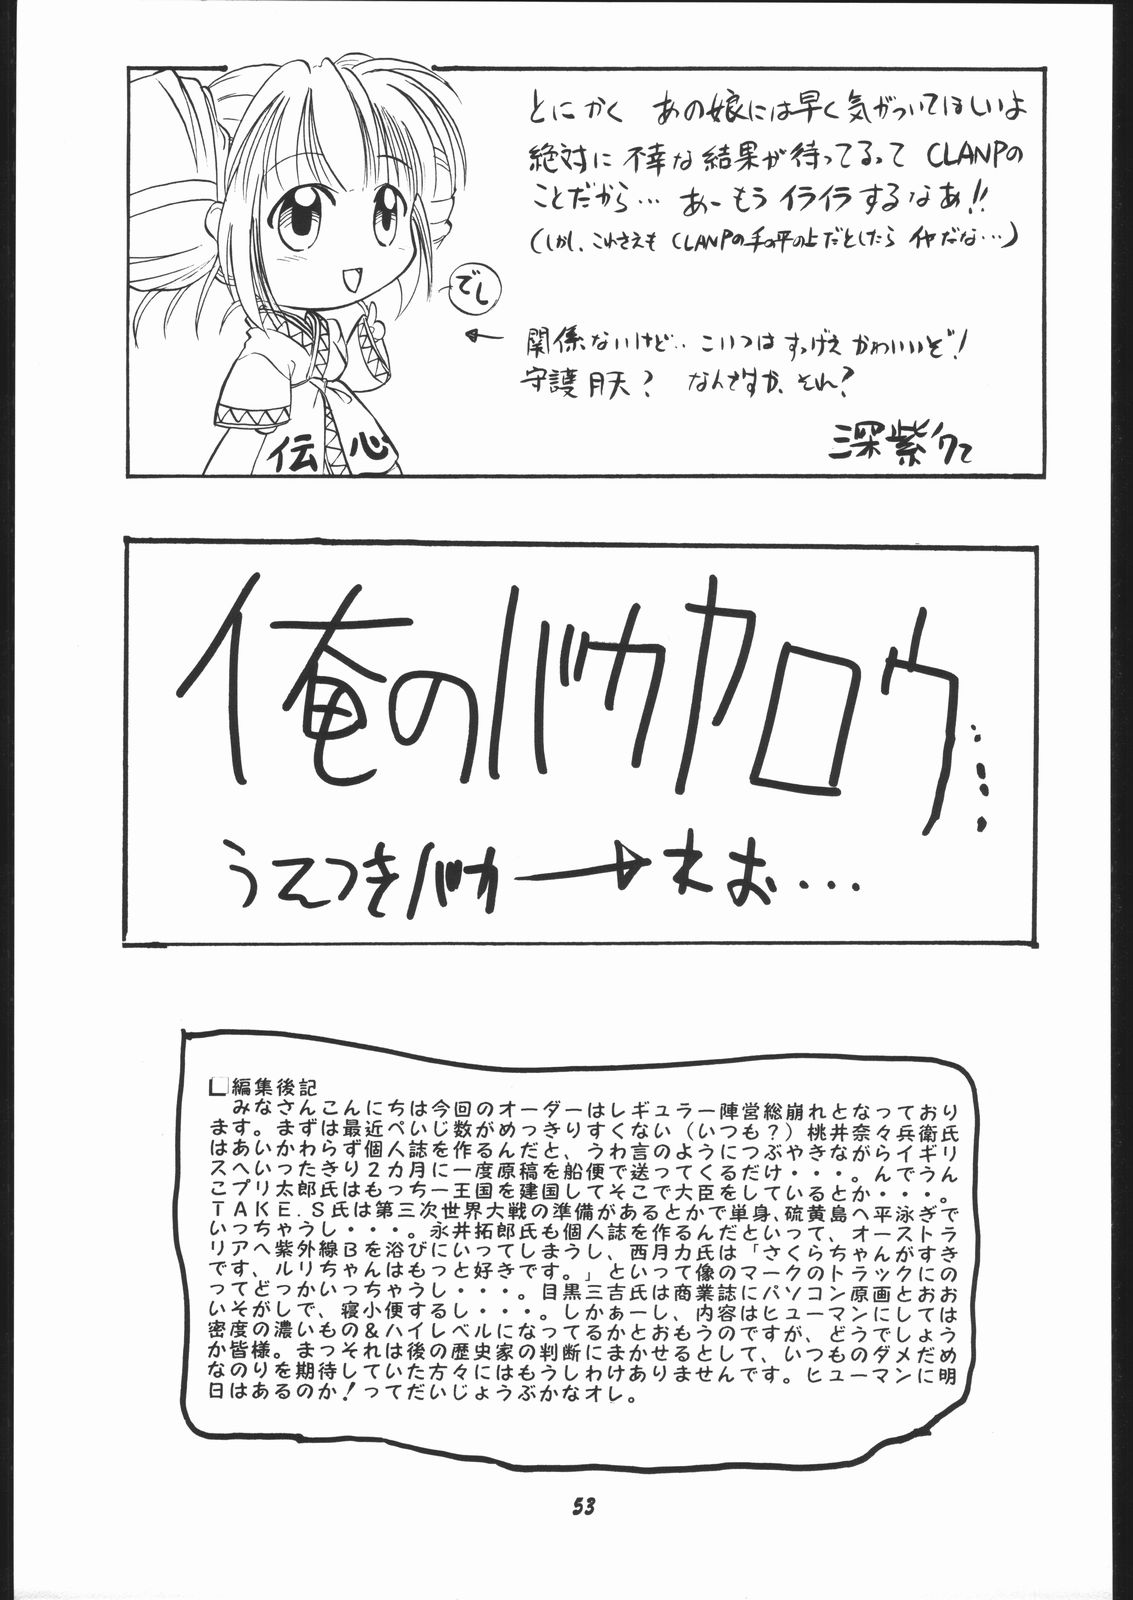 とにかく あの娘には早く気がついてほしいよ
絶対に不幸な結果が待ってるって CLANPの
ことだから… あーもう イライラするなあ!!
(しかし、これさえも CLANPの手の平の上だとしたら イヤだな…)
でし
← 関係ないけど‥ こいつは すっげえ かわいいぞ!
守護月天? なんですか、それ?
伝心
深紫
俺のバカヤロウ……
うえつきバカ→ねお…
編集後記
みなさんこんにちは今回のオーダーはレギュラー陣営総崩れとなっており
ます。まずは最近ぺいじ数がめっきりすくない(いつも?)桃井奈々兵衛氏
はあいかわらず個人誌を作るんだと、うわ言のようにつぶやきながらイギリ
スへいったきり2カ月に一度原稿を船便で送ってくるだけ・・・。んでうん
こプリ太郎氏はもっちー王国を建国してそこで大臣をしているとか・・・。
TAKE.S氏は第三次世界大戦の準備があるとかで単身、硫黄島へ平泳ぎで
いっちゃうし・・・。永井拓郎氏も個人誌を作るんだといって、オーストラ
リアへ紫外線Bを浴びにいってしまうし、西月力氏は「さくらちゃんがすき
です、ルリちゃんはもっと好きです。」といって像のマークのトラックにの
ってどっかいっちゃうし・・・。目黒三吉氏は商業誌にパソコン原画とおお
いそがしで、寝小便するし・・・。しかぁーし、内容はヒューマンにしては
密度の濃いもの&ハイレベルになってるかとおもうのですが、どうでしょう
か皆様。まっそれは後の歴史家の判断にまかせるとして、いつものダメだめ
なのりを期待していた方々にはもうしわけありませんです。ヒューマンに明
日はあるのか!ってだいじょうぶかなオレ。
53